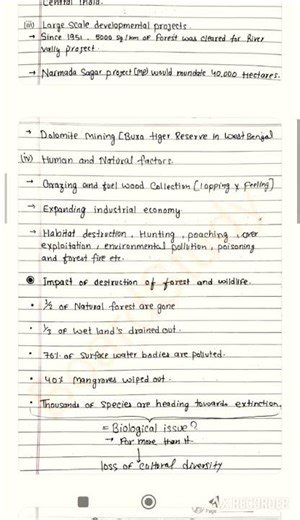 Central India.
(iii) Large Scale developmental projects
→ Since 1951, 5000 sq/km of Forest was cleared for River
vally project.
→ Narmada Sagar project (MP) would inundate 40,000 Hectares.
→ Dolomite Mining [Buxa tiger Reserve in West Bengal
(iv) Human and Natural factors.
→ Grazing and fuel wood Collection [lopping & felling]
→ Expanding industrial economy
→ Habitat destruction, Hunting, poaching, over
exploitation, environmental pollution, poisoning
and forest fire etc.
Impact of destruction of forest and wildlife.
• 1/2 of Natural forest are gone
• 1/3 of wet land's drained out.
• 70% of Surface water bodies are polluted.
• 40% mangroves wiped out.
• Thousands of Species are heading towards extinction.
= Biological issue?
→ Far more than it
↓
loss of cultural diversity
RECORDER